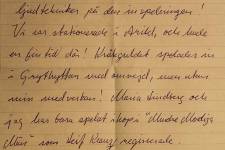 ljudtekniker på den inspelningen!
Vi var stationerade i Arild, och hade
en fin tid då! Kråkguldet spelades in
i Grythyttan med omnejd, men utan
min medverkan! Maria Lindberg och
jag har bara spelat ihop i "Andra Modiga
Män" som Leif Krantz regisserade.